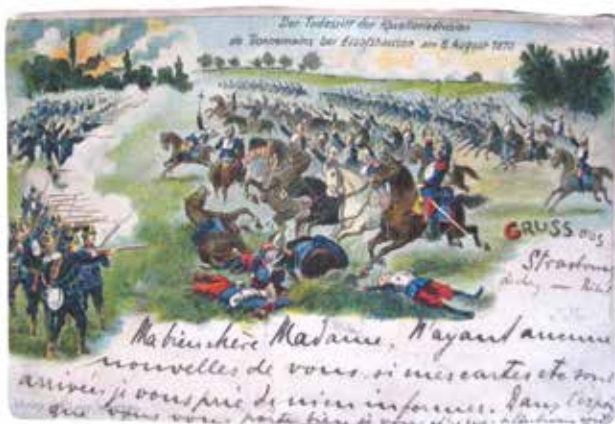 Der Todesritt der Kavalleriedivision
de Bonnemains bei Elsaßhausen am 6. August 1870
GRUSS aus
Strasbourg
Ma bien chère Madame, N'ayant aucune
nouvelles de vous si mes cartes etc sont
arrivées je vous prie de m'en informer. Dans l'espoir
que vous vous porte bien